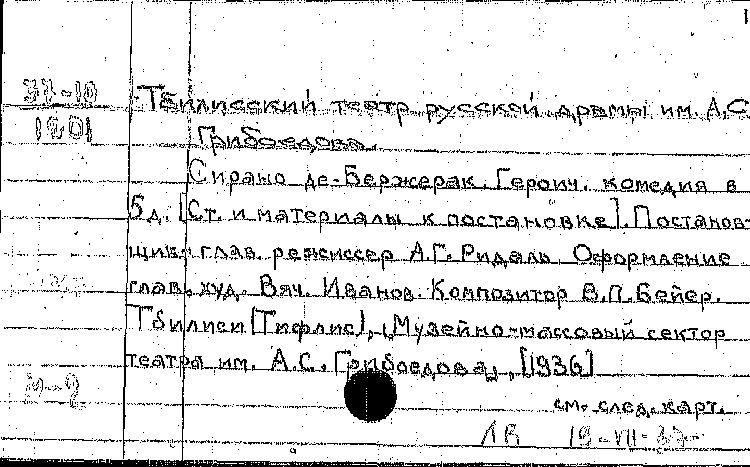 37-10
1201
Тбилисский театр русской драмы им. А.С.
Грибоедова.
Сирано де-Бержерак. Героич. комедия в
5д. [Ст. и материалы к постановке]. Постанов-
щик глав. режиссер А.Г. Ридаль Оформление
глав. худ. Вяч. Иванов. Композитор В.П. Бейер.
Тбилиси [Тифлис], Музейно-массовый сектор
театра им. А.С. Грибоедова, [1936]
см. след. карт.
19-VII-37